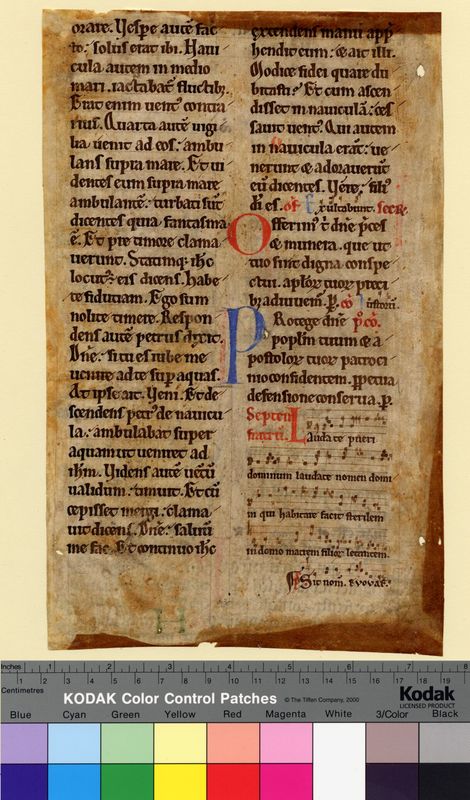 orare. Vespe aute fac
to: solus erat ibi. Navi
cula autem in medio
mari. iactabat fluctib;
Erat enim uent contra
rius. Quarta aute uigi
lia uenit ad eos: ambu
lans supra mare. Et ui
dentes eum supra mare
ambulante: turbati sut
dicentes quia fantasma
e. Et pre timore clama
uerunt. Statimq; ihc
locut eis dicens. habe
te fiduciam. Ego sum
nolite timere. Respon
dens aute petrus dixit.
Dne: si tu es iube me
uenire ad te sup aquas.
At ipse ait. Veni. Et de
scendens petr de nauicu
la: ambulabat super
aquam ut ueniret ad
ihm. Videns aute uetu
ualidum: timuit. Et cu
cepisset mergi: clama
uit dicens. Dne: saluu
me fac. Et continuo ihc
extendens manu app
hendit eum: & ait illi.
Modice fidei quare du
bitasti? Et cum ascen
disset in nauicula: ces
sauit uent. Qui autem
in nauicula erat: ue
nerunt & adorauerut
eu dicentes. Vere: fili
di es. of Exultabunt. secr.
Offerim t dne pces
& munera. que ut
tuo sint digna conspe
ctui. aplor tuor preci
b; adiuuem. p. co Iustoru.
Protege dne pco.
poplm tuum & a
postolor tuor patroci
nio confidentem. ppetua
defensione conserua. p.
Septem
fratru. Laudate pueri
dominum laudate nomen domi
ni qui habitare facit sterilem
in domo matrem filior letantem
Ps Sit nom. euouae.
H
Inches 1 2 3 4 5 6 7 8
Centimetres 1 2 3 4 5 6 7 8 9 10 11 12 13 14 15 16 17 18 19
KODAK Color Control Patches © The Tiffen Company, 2000 Kodak
LICENSED PRODUCT
Blue Cyan Green Yellow Red Magenta White 3/Color Black